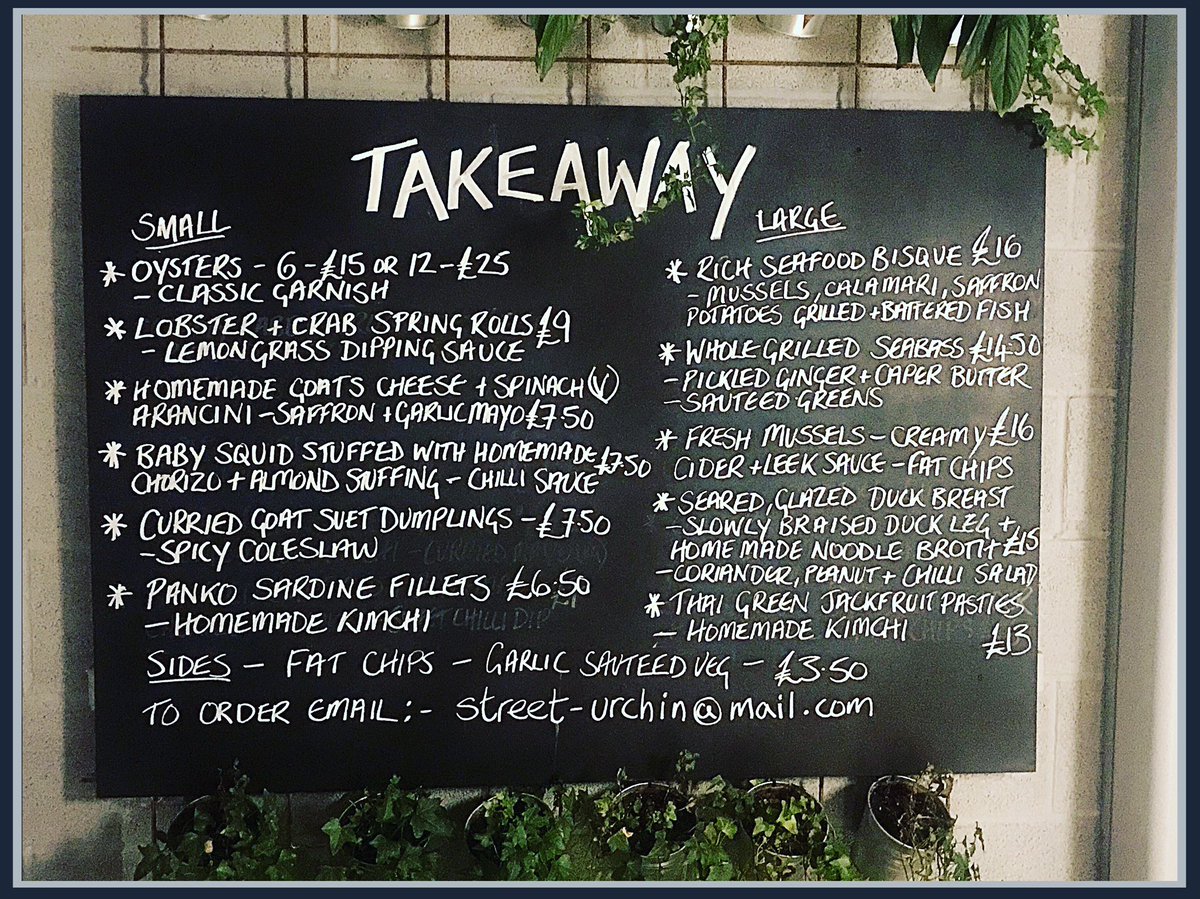 TAKEAWAY
SMALL
* OYSTERS - 6 - £15 OR 12 - £25
- CLASSIC GARNISH
* LOBSTER + CRAB SPRING ROLLS £9
- LEMONGRASS DIPPING SAUCE
* HOMEMADE GOATS CHEESE + SPINACH (V)
ARANCINI - SAFFRON + GARLIC MAYO £7.50
* BABY SQUID STUFFED WITH HOMEMADE £7.50
CHORIZO + ALMOND STUFFING - CHILLI SAUCE
* CURRIED GOAT SUET DUMPLINGS - £7.50
- SPICY COLESLAW
* PANKO SARDINE FILLETS £6.50
- HOMEMADE KIMCHI
LARGE
* RICH SEAFOOD BISQUE £16
- MUSSELS, CALAMARI, SAFFRON
POTATOES GRILLED + BATTERED FISH
* WHOLE GRILLED SEABASS £14.50
- PICKLED GINGER + CAPER BUTTER
- SAUTEED GREENS
* FRESH MUSSELS - CREAMY £16
CIDER + LEEK SAUCE - FAT CHIPS
* SEARED, GLAZED DUCK BREAST
- SLOWLY BRAISED DUCK LEG +
HOME MADE NOODLE BROTH £15
- CORIANDER, PEANUT + CHILLI SALAD
* THAI GREEN JACKFRUIT PASTIES
- HOMEMADE KIMCHI £13
SIDES - FAT CHIPS - GARLIC SAUTEED VEG - £3.50
TO ORDER EMAIL:- street-urchin@mail.com